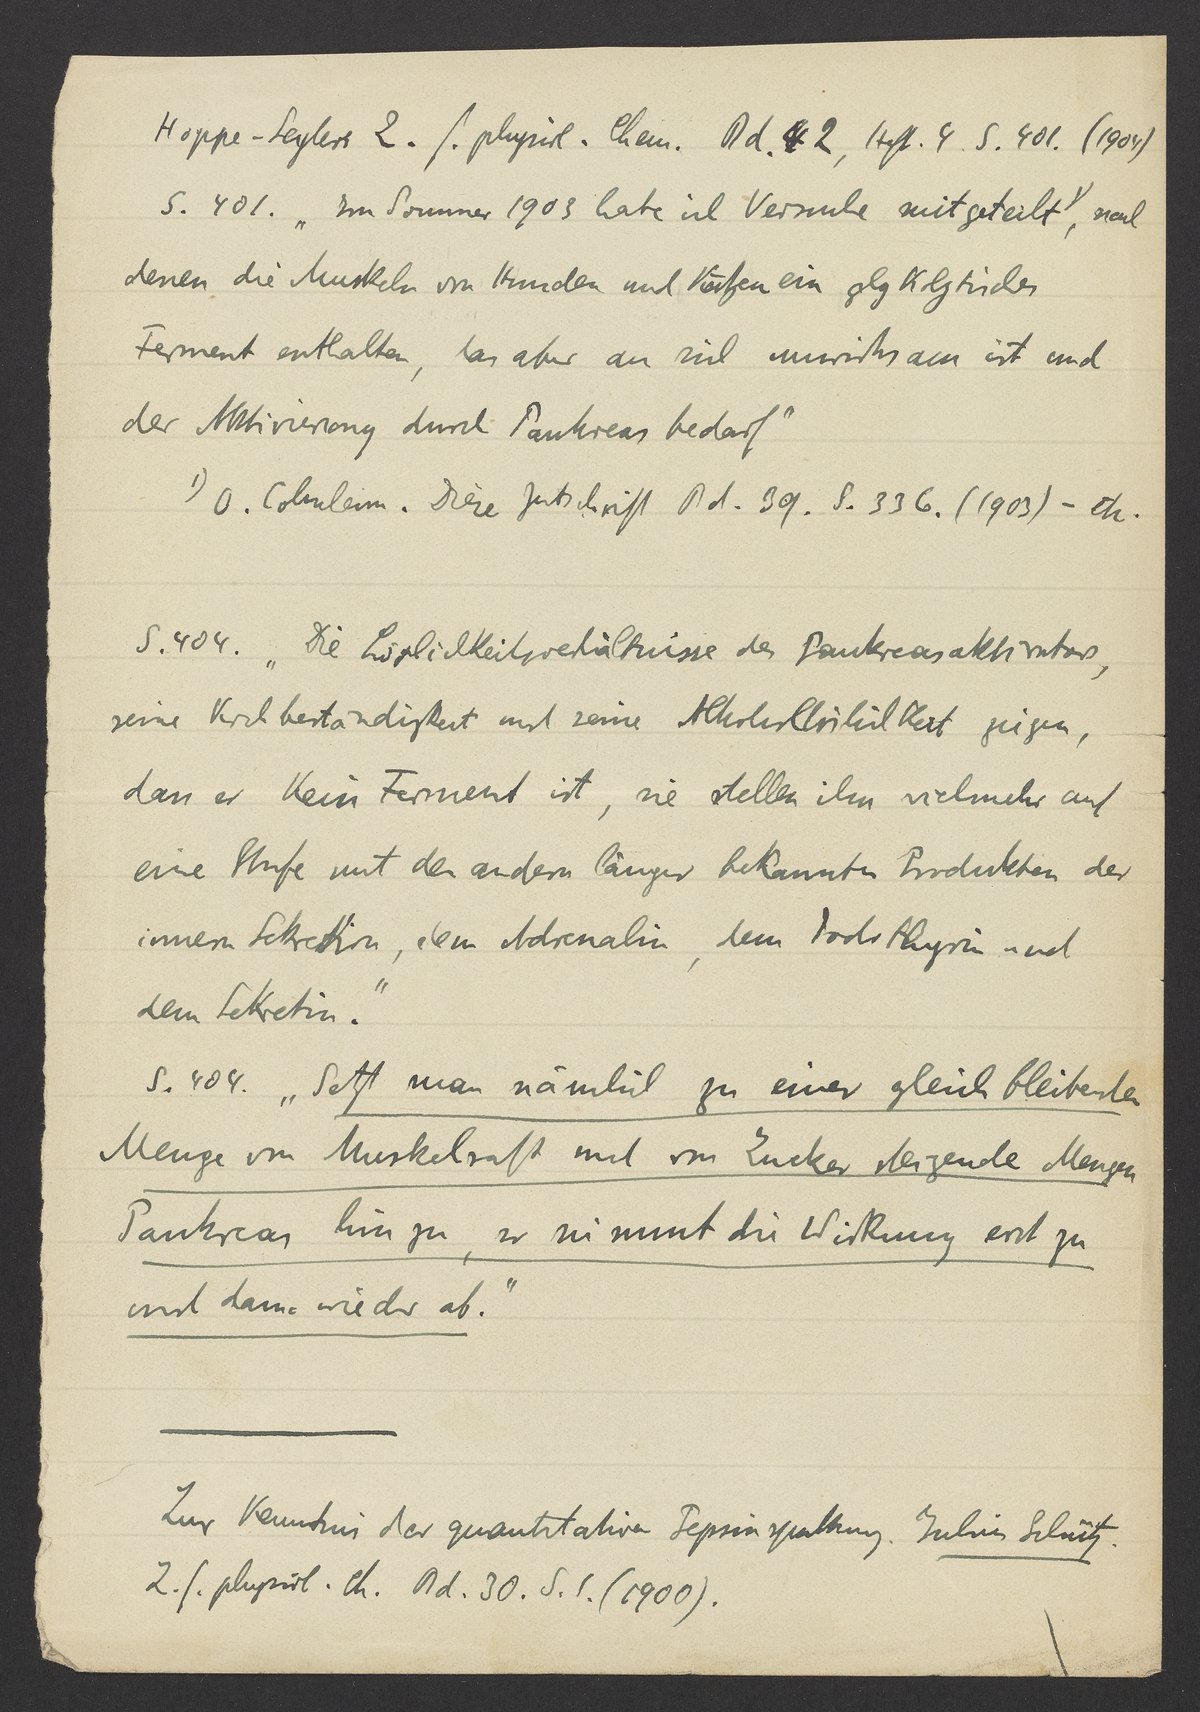 Hoppe-Seylers Z. f. physiol. Chem. Bd. 42, Heft. 4 S. 401. (1904)
S. 401. „Im Sommer 1903 habe ich Versuche mitgeteilt¹⁾, nach
denen die Muskeln von Hunden und Katzen ein glykolytisches
Ferment enthalten, das aber an sich unwirksam ist und
der Aktivierung durch Pankreas bedarf"
¹⁾ O. Cohnheim. Diese Zeitschrift Bd. 39. S. 336. (1903) – etc.
S. 404. „Die Löslichkeitsverhältnisse des Pankreasaktivators,
seine Kochbeständigkeit und seine Alkohollöslichkeit zeigen,
dass er kein Ferment ist, sie stellen ihn vielmehr auf
eine Stufe mit den andern länger bekannten Produkten der
innern Sekretion, dem Adrenalin, dem Jodothyrin und
dem Sekretin."
S. 404. „Setzt man nämlich zu einer gleich bleibenden
Menge von Muskelsaft und von Zucker steigende Mengen
Pankreas hinzu, so nimmt die Wirkung erst zu
und dann wieder ab."
Zur Kenntnis der quantitativen Pepsinspaltung. Julius Schütz.
Z. f. physiol. Ch. Bd. 30. S. 1. (1900).